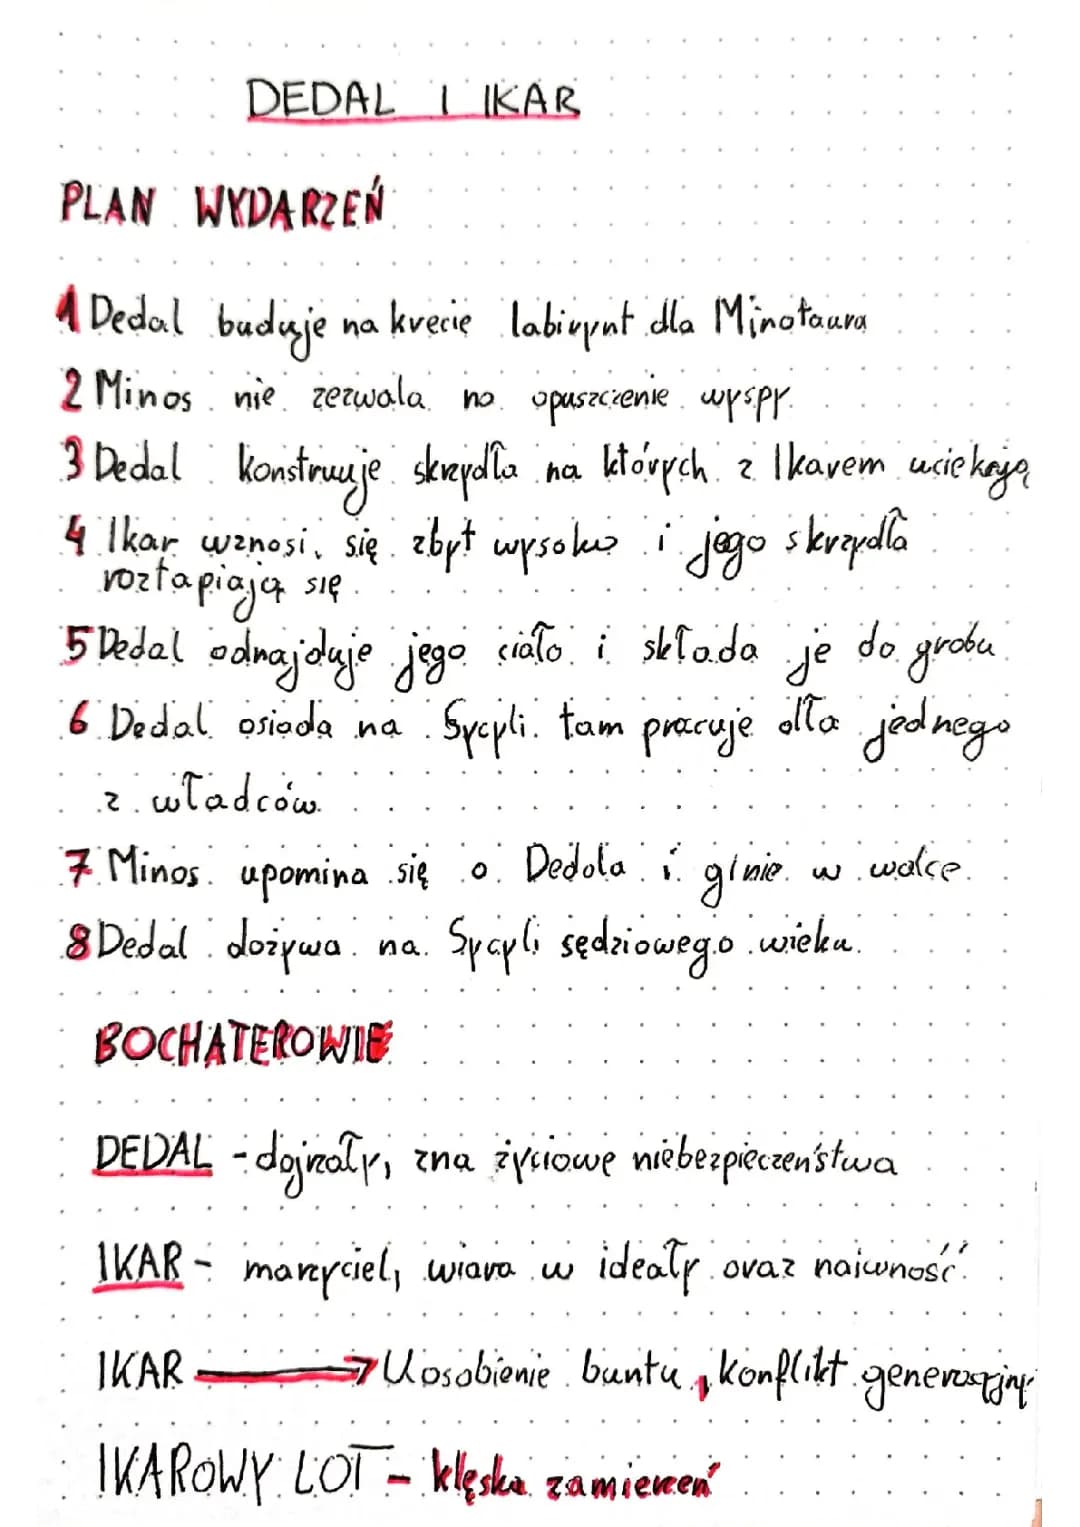 DEDAL I IKAR
PLAN WYDARZEŃ
1 Dedal buduje na krecie labirynt dla Minotaura
2 Minos nie zezwala na opuszczenie wyspy.
3 Dedal konstruuje skrzydła na których z Ikarem uciekają
4 Ikar wznosi się zbyt wysoko i jego skrzydła
roztapiają się.
5 Dedal odnajduje jego ciało i składa je do grobu.
6 Dedal osiada na Sycyli. tam pracuje dla jednego
z władców.
7 Minos upomina się o Dedala i ginie w walce.
8 Dedal dożywa na Sycyli sędziowego wieku.
BOCHATEROWIE
DEDAL - dojrzały, zna życiowe niebezpieczeństwa
IKAR - marzyciel, wiara w ideały oraz naiwność.
IKAR → Uosobienie buntu, konflikt generacyjny
IKAROWY LOT - klęska zamierzeń